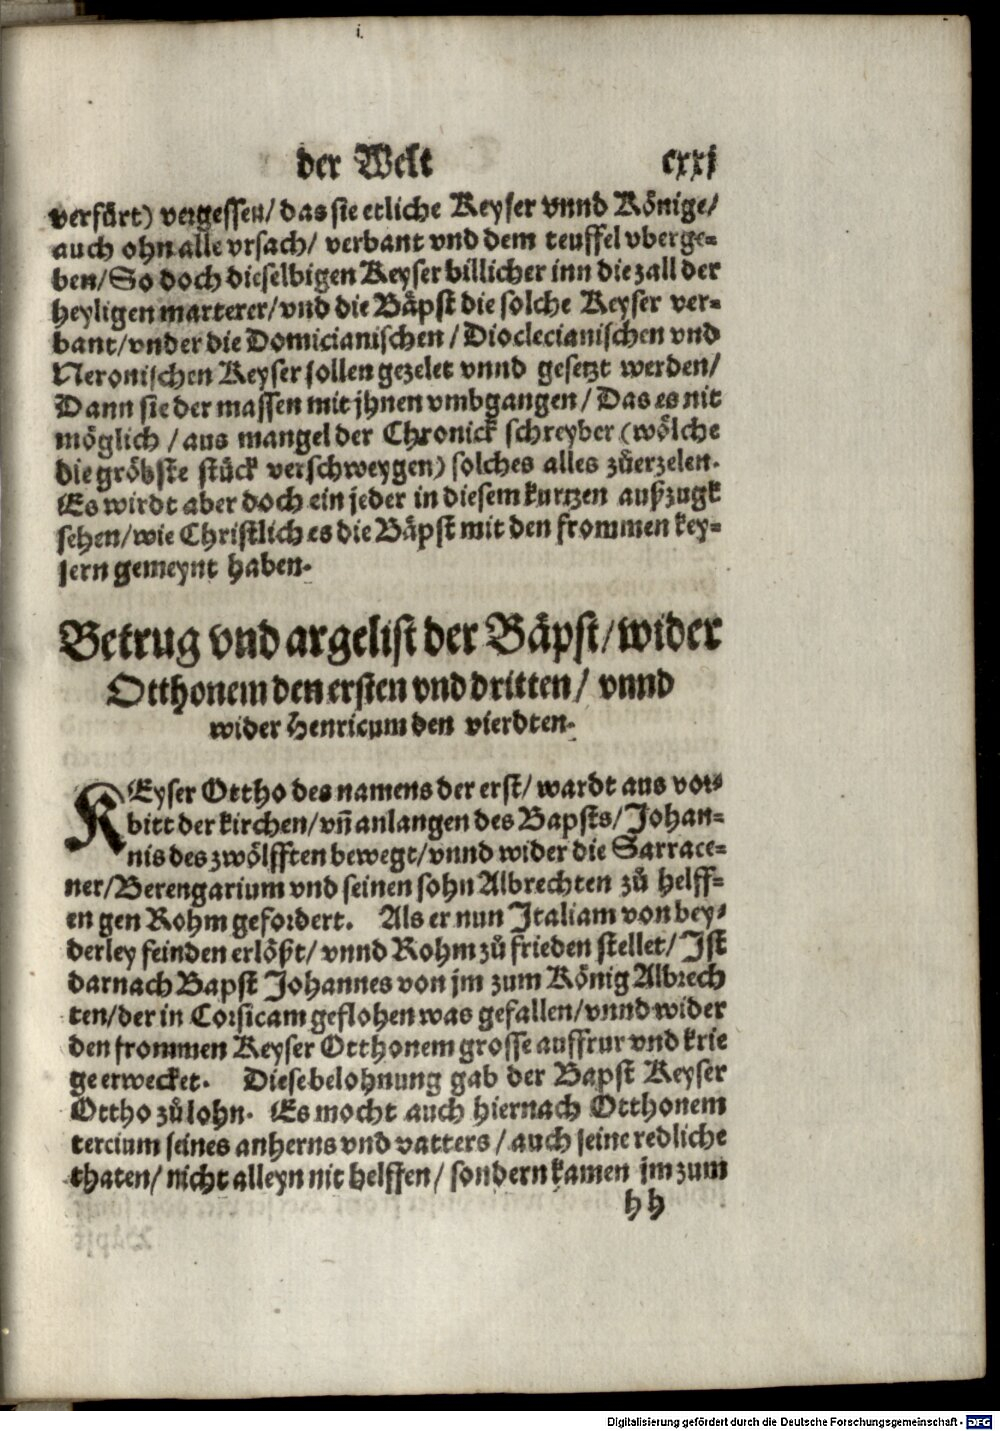 i.
der Welt cxxj
verfürt) vergessen/ das sie etliche Keyser vnnd Könige/
auch ohn alle vrsach/ verbant vnd dem teuffel vberge=
ben/ So doch dieselbigen Keyser billicher inn die zall der
heyligen marterer/ vnd die Bäpst die solche Keyser ver=
bant/ vnder die Domicianischen/ Dioclecianischen vnd
Neronischen Keyser sollen gezelet vnnd gesetzt werden/
Dann sie der massen mit jhnen vmbgangen/ Das es nit
möglich/ aus mangel der Chronick schreyber (wölche
die gröbste stück verschweygen) solches alles zůerzelen.
Es wirdt aber doch ein jeder in diesem kurtzen außzugk
sehen/ wie Christlich es die Bäpst mit den frommen key=
sern gemeynt haben.
Betrug vnd argelist der Bäpst/ wider
Otthonem den ersten vnd dritten/ vnnd
wider Henricum den vierdten.
KEyser Ottho des namens der erst/ wardt aus vor=
bitt der kirchen/ vñ anlangen des Bapsts/ Johan=
nis des zwölfften bewegt/ vnnd wider die Sarrace=
ner/ Berengarium vnd seinen sohn Albrechten zů helff=
en gen Rohm gefordert. Als er nun Italiam von bey=
derley feinden erlößt/ vnnd Rohm zů frieden stellet/ Ist
darnach Bapst Johannes von jm zum König Albrech
ten/ der in Corsicam geflohen was gefallen/ vnnd wider
den frommen Keyser Otthonem grosse auffrur vnd krie
ge erwecket. Diese belohnung gab der Bapst Keyser
Ottho zů lohn. Es mocht auch hiernach Otthonem
tercium seines anherns vnd vatters/ auch seine redliche
thaten/ nicht alleyn nit helffen/ sondern kamen jm zum
hh
Digitalisierung gefördert durch die Deutsche Forschungsgemeinschaft - DFG